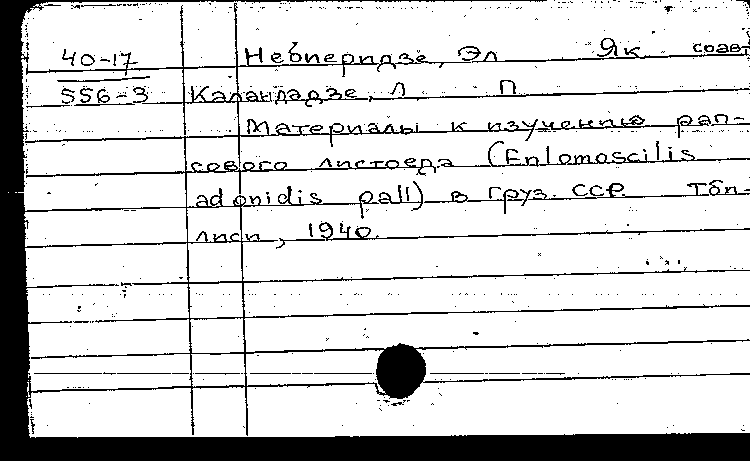 40-17 Небперидзе, Эл Як соавт
556-3 Каландадзе, Л П
Материалы к изучению рап-
сового листоеда (Enlomoscilis
adonidis pall) в Груз. ССР. Тби-
лиси, 1940.